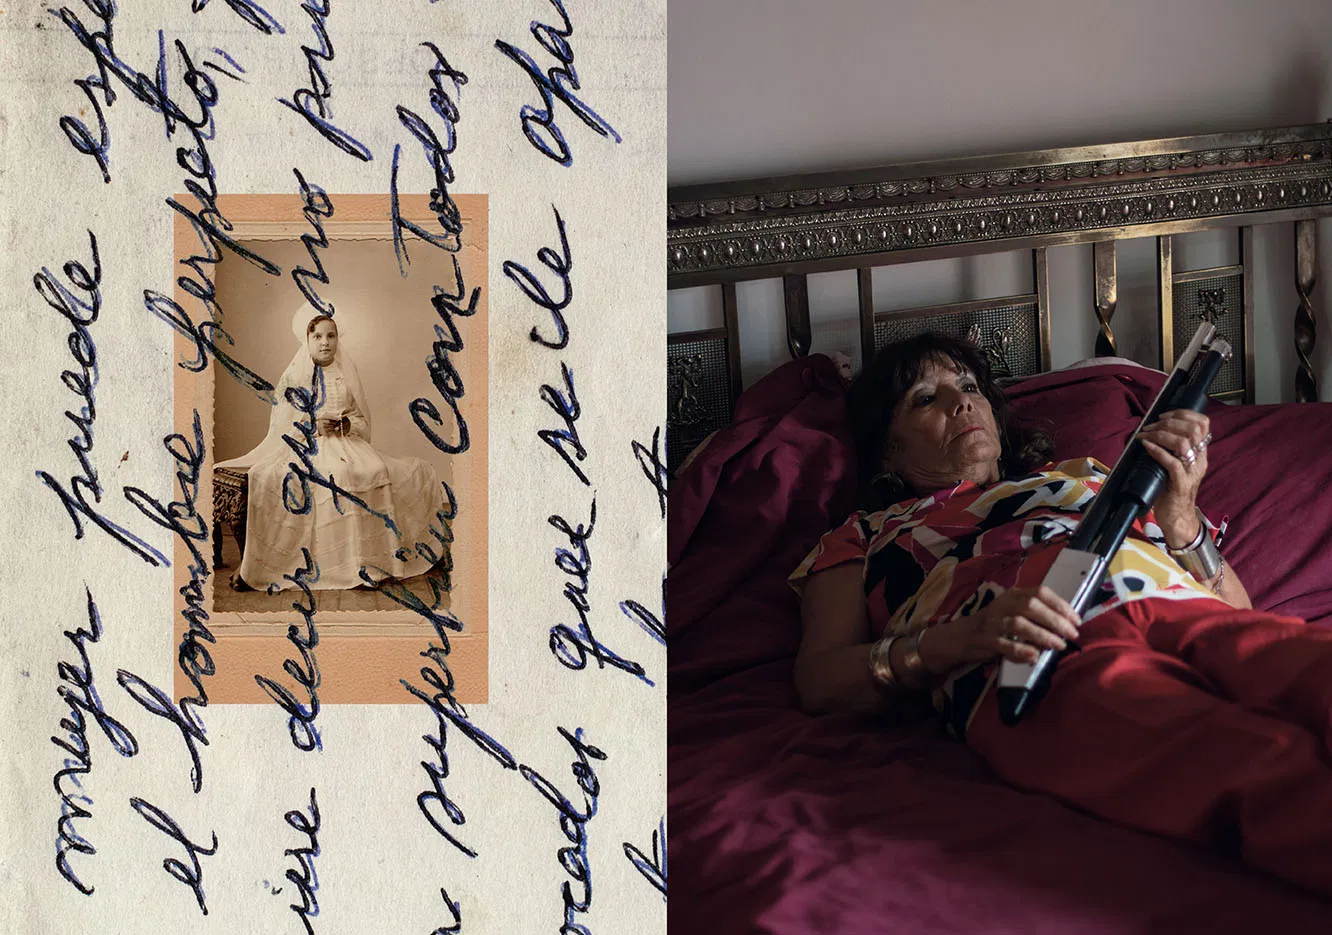 mujer puede espe
el hombre perfecto,
iere decir que no
super bien con Todos
ocados que se le apa